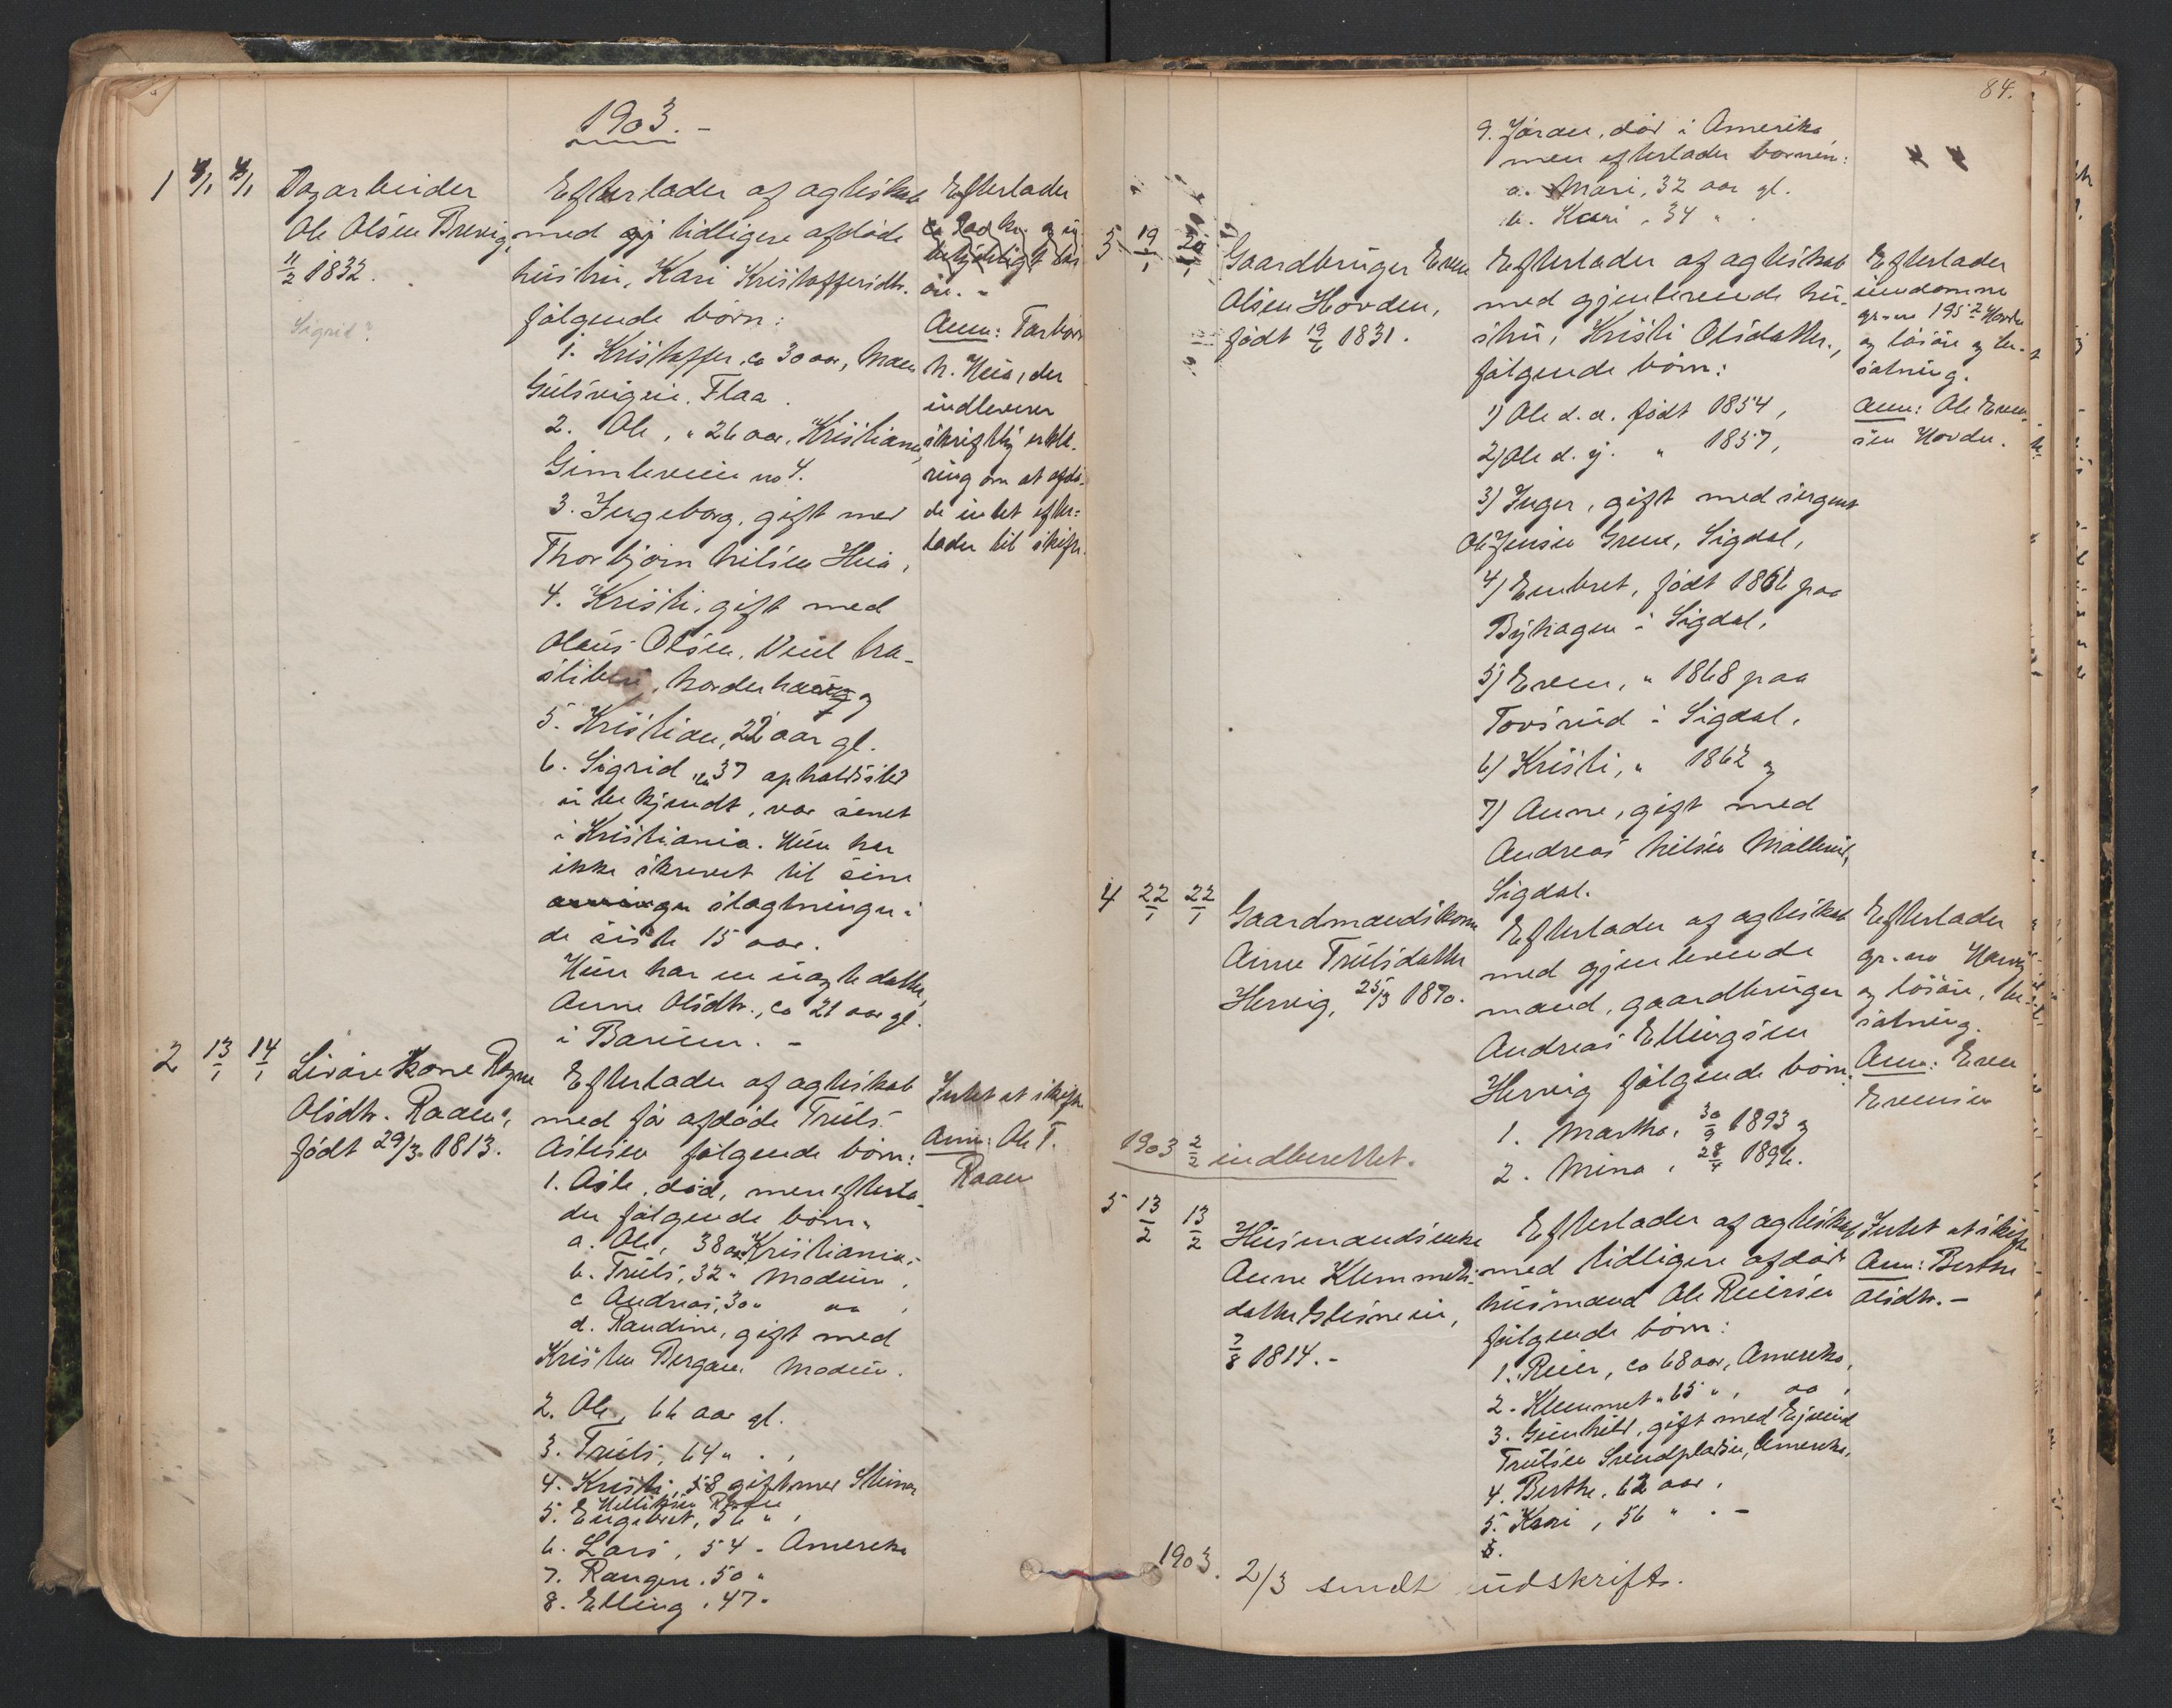 1903. -
1 4/1 4/1 Dagarbeider
Ole Olsen Brevig,
11/2 1832.
Sigrid?
Efterlader af ægteskab
med sj tidligere afdøde
hustru, Kari Kristoffersdtr.
følgende børn:
1. Kristoffer, ca 30 aar,
Gulsvigeie. Flaa.
2. Ole, " 26 aar, Kristiania,
Gimleveien no 4.
3. Ingeborg, gift med
Thorbjørn Nilsen Heia,
4. Kristi, gift med
Olaus Olsen, Norderhaug og
5. Kristian, 22 aar gl.
6. Sigrid, ca 37 opholdssted
ubekjendt, var senest
i Kristiania. Hun har
ikke skrevet til sine
slægtninger i
de siste 15 aar.
Hun har en uægte datter,
Anne Olsdtr., ca 21 aar gl.
i Bærum. -
Efterlader
øre. -
Anm: Torbjør
N. Heia, der
indleverer
skriftlig erklæ-
ring om at afdø-
de intet efter-
lader til skifte.
2 13/1 14/1 Livøre Kone Ragne
Olsdtr. Raaen,
født 29/3 1813.
Efterlader af ægteskab
med før afdøde Truls
Aslesen følgende børn:
1. Asle, død, men efterla-
der følgende børn:
a. Ole, 38 aar Kristiania,
b. Truls, 32 " Modum,
c. Andreas, 30 " do,
d. Randine, gift med
Kristen Bergan Modum.
2. Ole, 66 aar gl.
3. Truls, 64 " .,
4. Kristi, 58 gift med Steinar
Helliksen Raaen
5. Engebret, 56 ",
6. Lars, 54 - Amerika
7. Rangen. 50 "
8. Elling, 47.
Intet at skifte
Anm: Ole T.
Raaen
84.
9. Jøran, død i Amerika
men efterlader børnene:
a. Mari, 32 aar gl.
b. Kari, 34 " .
3 19/1 20/1 Gaardbruger Even
Olsen Hovden,
født 19/6 1831.
Efterlader af ægteskab
med gjenlevende hu-
stru, Kristi Olsdatter,
følgende børn:
1) Ole d. æ. født 1854,
2) Ole d. y. " 1857,
3) Inger, gift med sergent
Ole Jensen Grene, Sigdal,
4) Embret, født 1866 paa
Byhagen i Sigdal,
5) Even, " 1868 paa
Tovsrud i Sigdal,
6) Kristi, " 1862 og
7) Anne, gift med
Andreas Nilsen Møllerud,
Sigdal.
Efterlader
eiendomme
gr. no 195 Hovde
og løsøre og be-
sætning.
Anm: Ole Even-
sen Hovde.
4 22/1 22/1 Gaardmandskone
Anne Trulsdatter
Hervig, 25/3 1870.
Efterlader af ægteskab
med gjenlevende
mand, gaardbruger
Andreas Ellingsen
Hervig følgende børn:
1. Martha, 30/9 1893 og
2. Mina, 28/4 1896.
Efterlader
gr. no Hervig
og løsøre, be-
sætning.
Anm: Even
Evensen
1903 2/2 indberettet.
5 13/2 13/2 Husmandsenke
Anne Klemmets-
datter Glesneeie,
2/8 1814. -
Efterlader af ægteskab
med tidligere afdød
husmand Ole Reiersen
følgende børn:
1. Reier, ca 68 aar, Amerika,
2. Klemmet " 65 ", do,
3. Gunhild, gift med Ejvind
Trulsen Svendpladsen, Amerika,
4. Berthe, 62 aar,
5. Kari, 56 " . -
Intet at skifte
Anm: Berthe
Olsdtr. -
1903. 2/3 sendt udskrift.